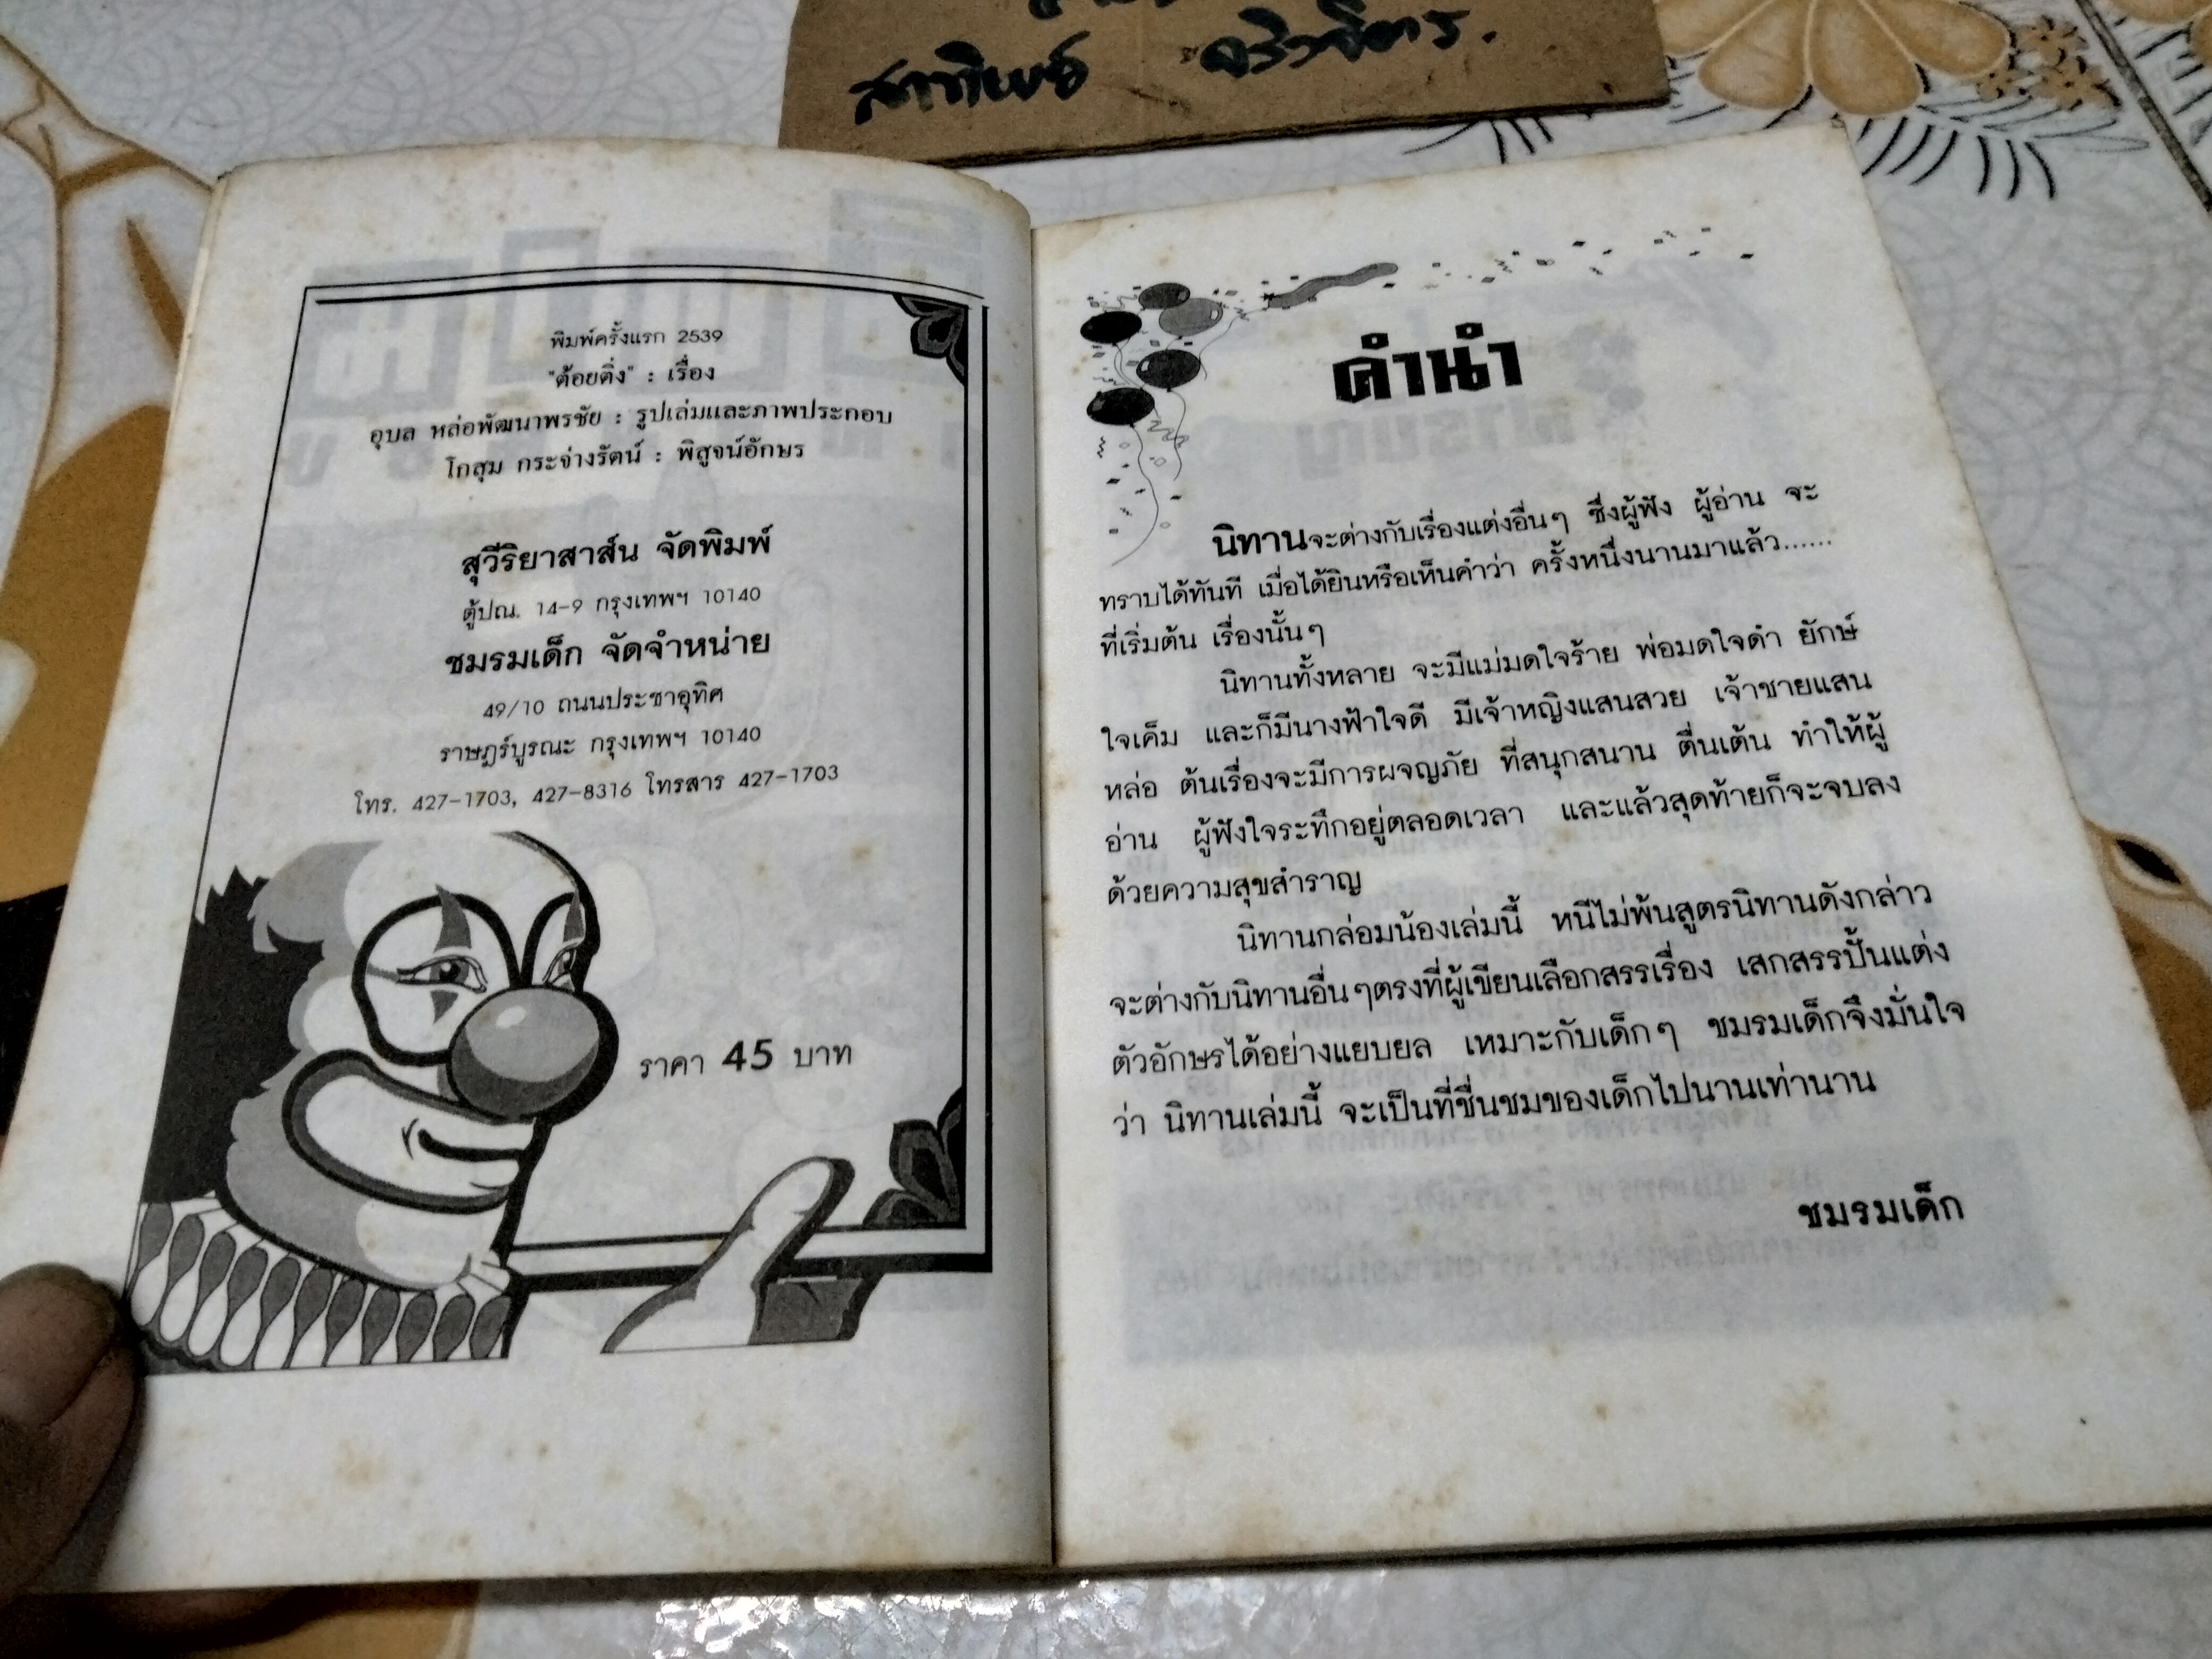 พิมพ์ครั้งแรก 2539
"ต้อยติ่ง" : เรื่อง
อุบล หล่อพัฒนาพรชัย : รูปเล่มและภาพประกอบ
โกสุม กระจ่างรัตน์ : พิสูจน์อักษร
สุวีริยาสาส์น จัดพิมพ์
ตู้ปณ. 14-9 กรุงเทพฯ 10140
ชมรมเด็ก จัดจำหน่าย
49/10 ถนนประชาอุทิศ
ราษฎร์บูรณะ กรุงเทพฯ 10140
โทร. 427-1703, 427-8316 โทรสาร 427-1703
ราคา 45 บาท
คำนำ
นิทานจะต่างกับเรื่องแต่งอื่นๆ ซึ่งผู้ฟัง ผู้อ่าน จะ
ทราบได้ทันที เมื่อได้ยินหรือเห็นคำว่า ครั้งหนึ่งนานมาแล้ว......
ที่เริ่มต้น เรื่องนั้นๆ
นิทานทั้งหลาย จะมีแม่มดใจร้าย พ่อมดใจดำ ยักษ์
ใจเค็ม และก็มีนางฟ้าใจดี มีเจ้าหญิงแสนสวย เจ้าชายแสน
หล่อ ต้นเรื่องจะมีการผจญภัย ที่สนุกสนาน ตื่นเต้น ทำให้ผู้
อ่าน ผู้ฟังใจระทึกอยู่ตลอดเวลา และแล้วสุดท้ายก็จะจบลง
ด้วยความสุขสำราญ
นิทานกล่อมน้องเล่มนี้ หนีไม่พ้นสูตรนิทานดังกล่าว
จะต่างกับนิทานอื่นๆตรงที่ผู้เขียนเลือกสรรเรื่อง เสกสรรปั้นแต่ง
ตัวอักษรได้อย่างแยบยล เหมาะกับเด็กๆ ชมรมเด็กจึงมั่นใจ
ว่า นิทานเล่มนี้ จะเป็นที่ชื่นชมของเด็กไปนานเท่านาน
ชมรมเด็ก